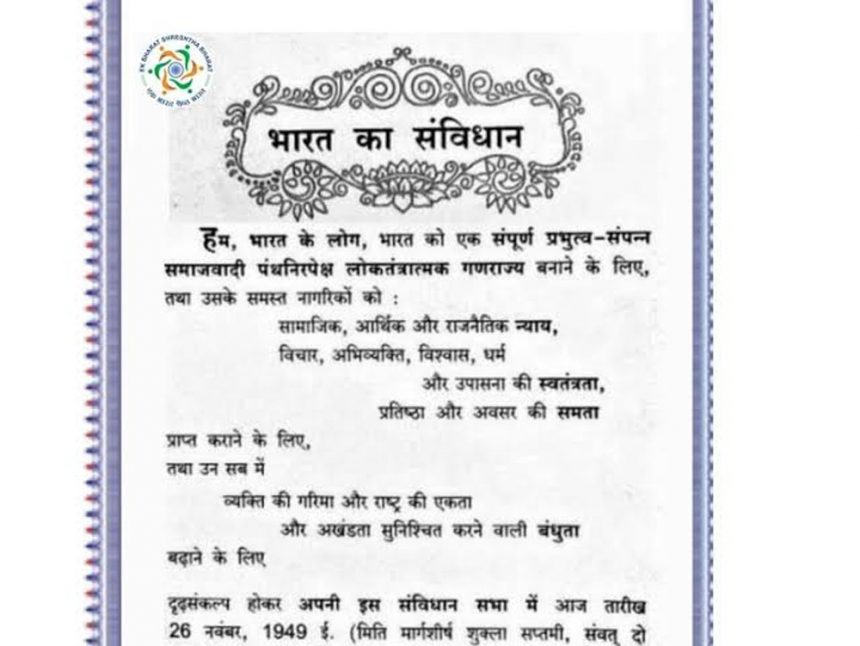 EK BHARAT SHRESHTHA BHARAT
भारत का संविधान
हम, भारत के लोग, भारत को एक संपूर्ण प्रभुत्व-संपन्न
समाजवादी पंथनिरपेक्ष लोकतंत्रात्मक गणराज्य बनाने के लिए,
तथा उसके समस्त नागरिकों को :
सामाजिक, आर्थिक और राजनैतिक न्याय,
विचार, अभिव्यक्ति, विश्वास, धर्म
और उपासना की स्वतंत्रता,
प्रतिष्ठा और अवसर की समता
प्राप्त कराने के लिए,
तथा उन सब में
व्यक्ति की गरिमा और राष्ट्र की एकता
और अखंडता सुनिश्चित करने वाली बंधुता
बढ़ाने के लिए
दृढ़संकल्प होकर अपनी इस संविधान सभा में आज तारीख
26 नवंबर, 1949 ई. (मिति मार्गशीर्ष शुक्ला सप्तमी, संवत् दो